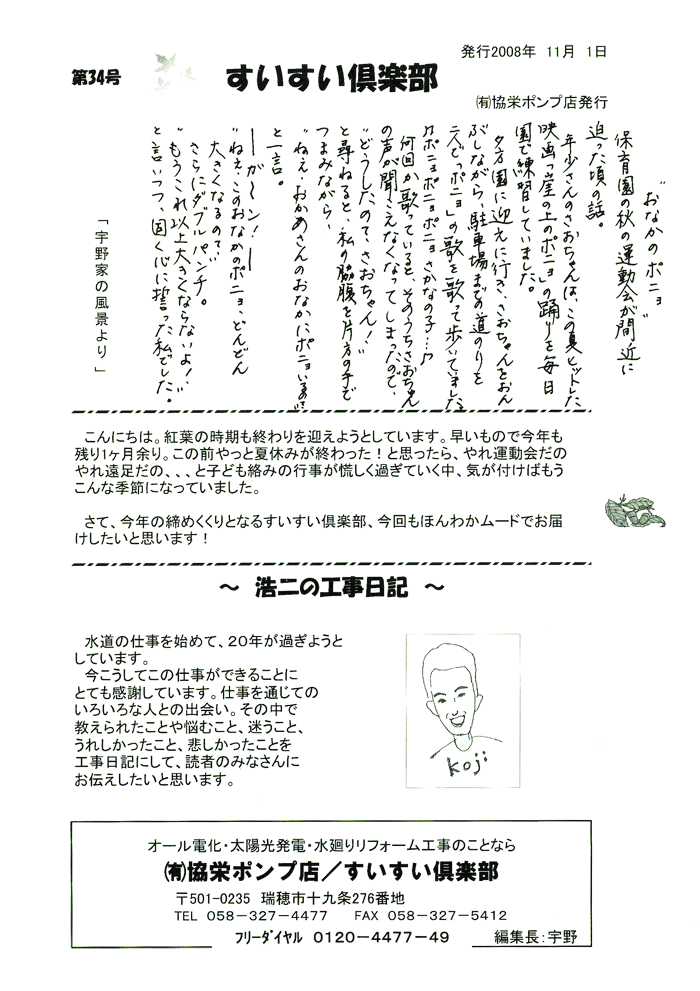 発行2008年 11月 1日
第34号
すいすい倶楽部
㈲協栄ポンプ店発行
"おなかのポニョ"
保育園の秋の運動会が間近に
迫った頃の話。
年少さんのさおちゃんは、この夏ヒットした
映画「崖の上のポニョ」の踊りを毎日
園で練習していました。
夕方園に迎えに行き、さおちゃんをおん
ぶしながら、駐車場までの道のりを
二人で「ポニョ」の歌を歌って歩いていました。
"ポニョポニョポニョさかなの子…♪
何回か歌っていると、そのうちさおちゃん
の声が聞こえなくなってしまったので、
"どうしたの?さおちゃん!"
と尋ねると、私の脇腹を片方の手で
つまみながら…
"ねぇ、おかあさんのおなかにポニョいるの?"
と一言。
―ガ～ン!―
"ねぇ、このおなかのポニョ、どんどん
大きくなるの?"
さらにダブルパンチ。
"もうこれ以上大きくならないよ!"
と言いつつ、固く心に誓った私でした。
「宇野家の風景より」
こんにちは。紅葉の時期も終わりを迎えようとしています。早いもので今年も
残り1ヶ月余り。この前やっと夏休みが終わった！と思ったら、やれ運動会だの
やれ遠足だの、、、と子ども絡みの行事が慌しく過ぎていく中、気が付けばもう
こんな季節になっていました。
さて、今年の締めくくりとなるすいすい倶楽部、今回もほんわかムードでお届
けしたいと思います！
～ 浩二の工事日記 ～
水道の仕事を始めて、２０年が過ぎようと
しています。
今こうしてこの仕事ができることに
とても感謝しています。仕事を通じての
いろいろな人との出会い。その中で
教えられたことや悩むこと、迷うこと、
うれしかったこと、悲しかったことを
工事日記にして、読者のみなさんに
お伝えしたいと思います。
koji
オール電化・太陽光発電・水廻りリフォーム工事のことなら
㈲協栄ポンプ店／すいすい倶楽部
〒501-0235 瑞穂市十九条276番地
TEL 058-327-4477 FAX 058-327-5412
ﾌﾘｰﾀﾞｲﾔﾙ 0120-4477-49
編集長：宇野